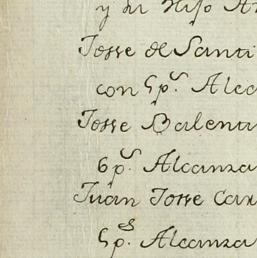 y su Hijo An
Josse de Santi
con 5p.s Alca
Josse Balenti
6p.s Alcanza
Juan Josse Car
5p.s Alcanza